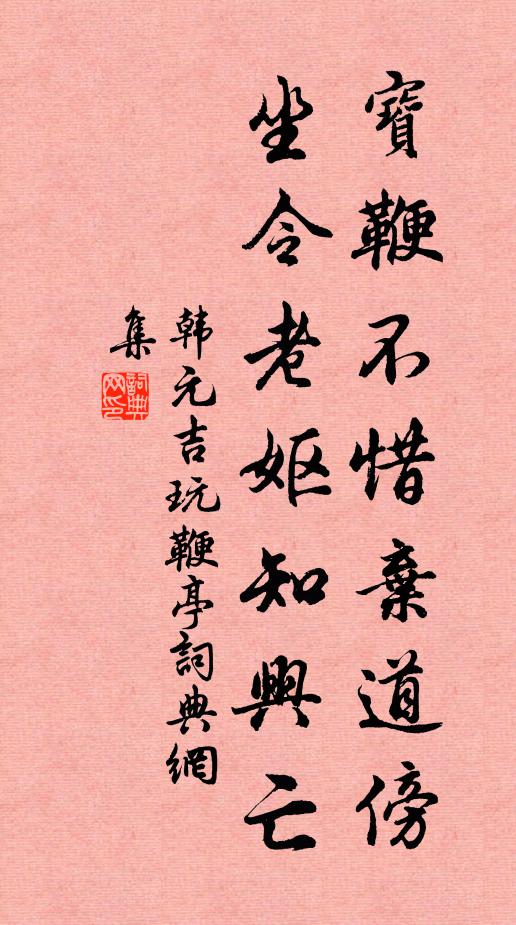 寶鞭不惜棄道傍
坐令老嫗知興亡
韩元吉玩鞭亭詞典網
集
詞典
网印